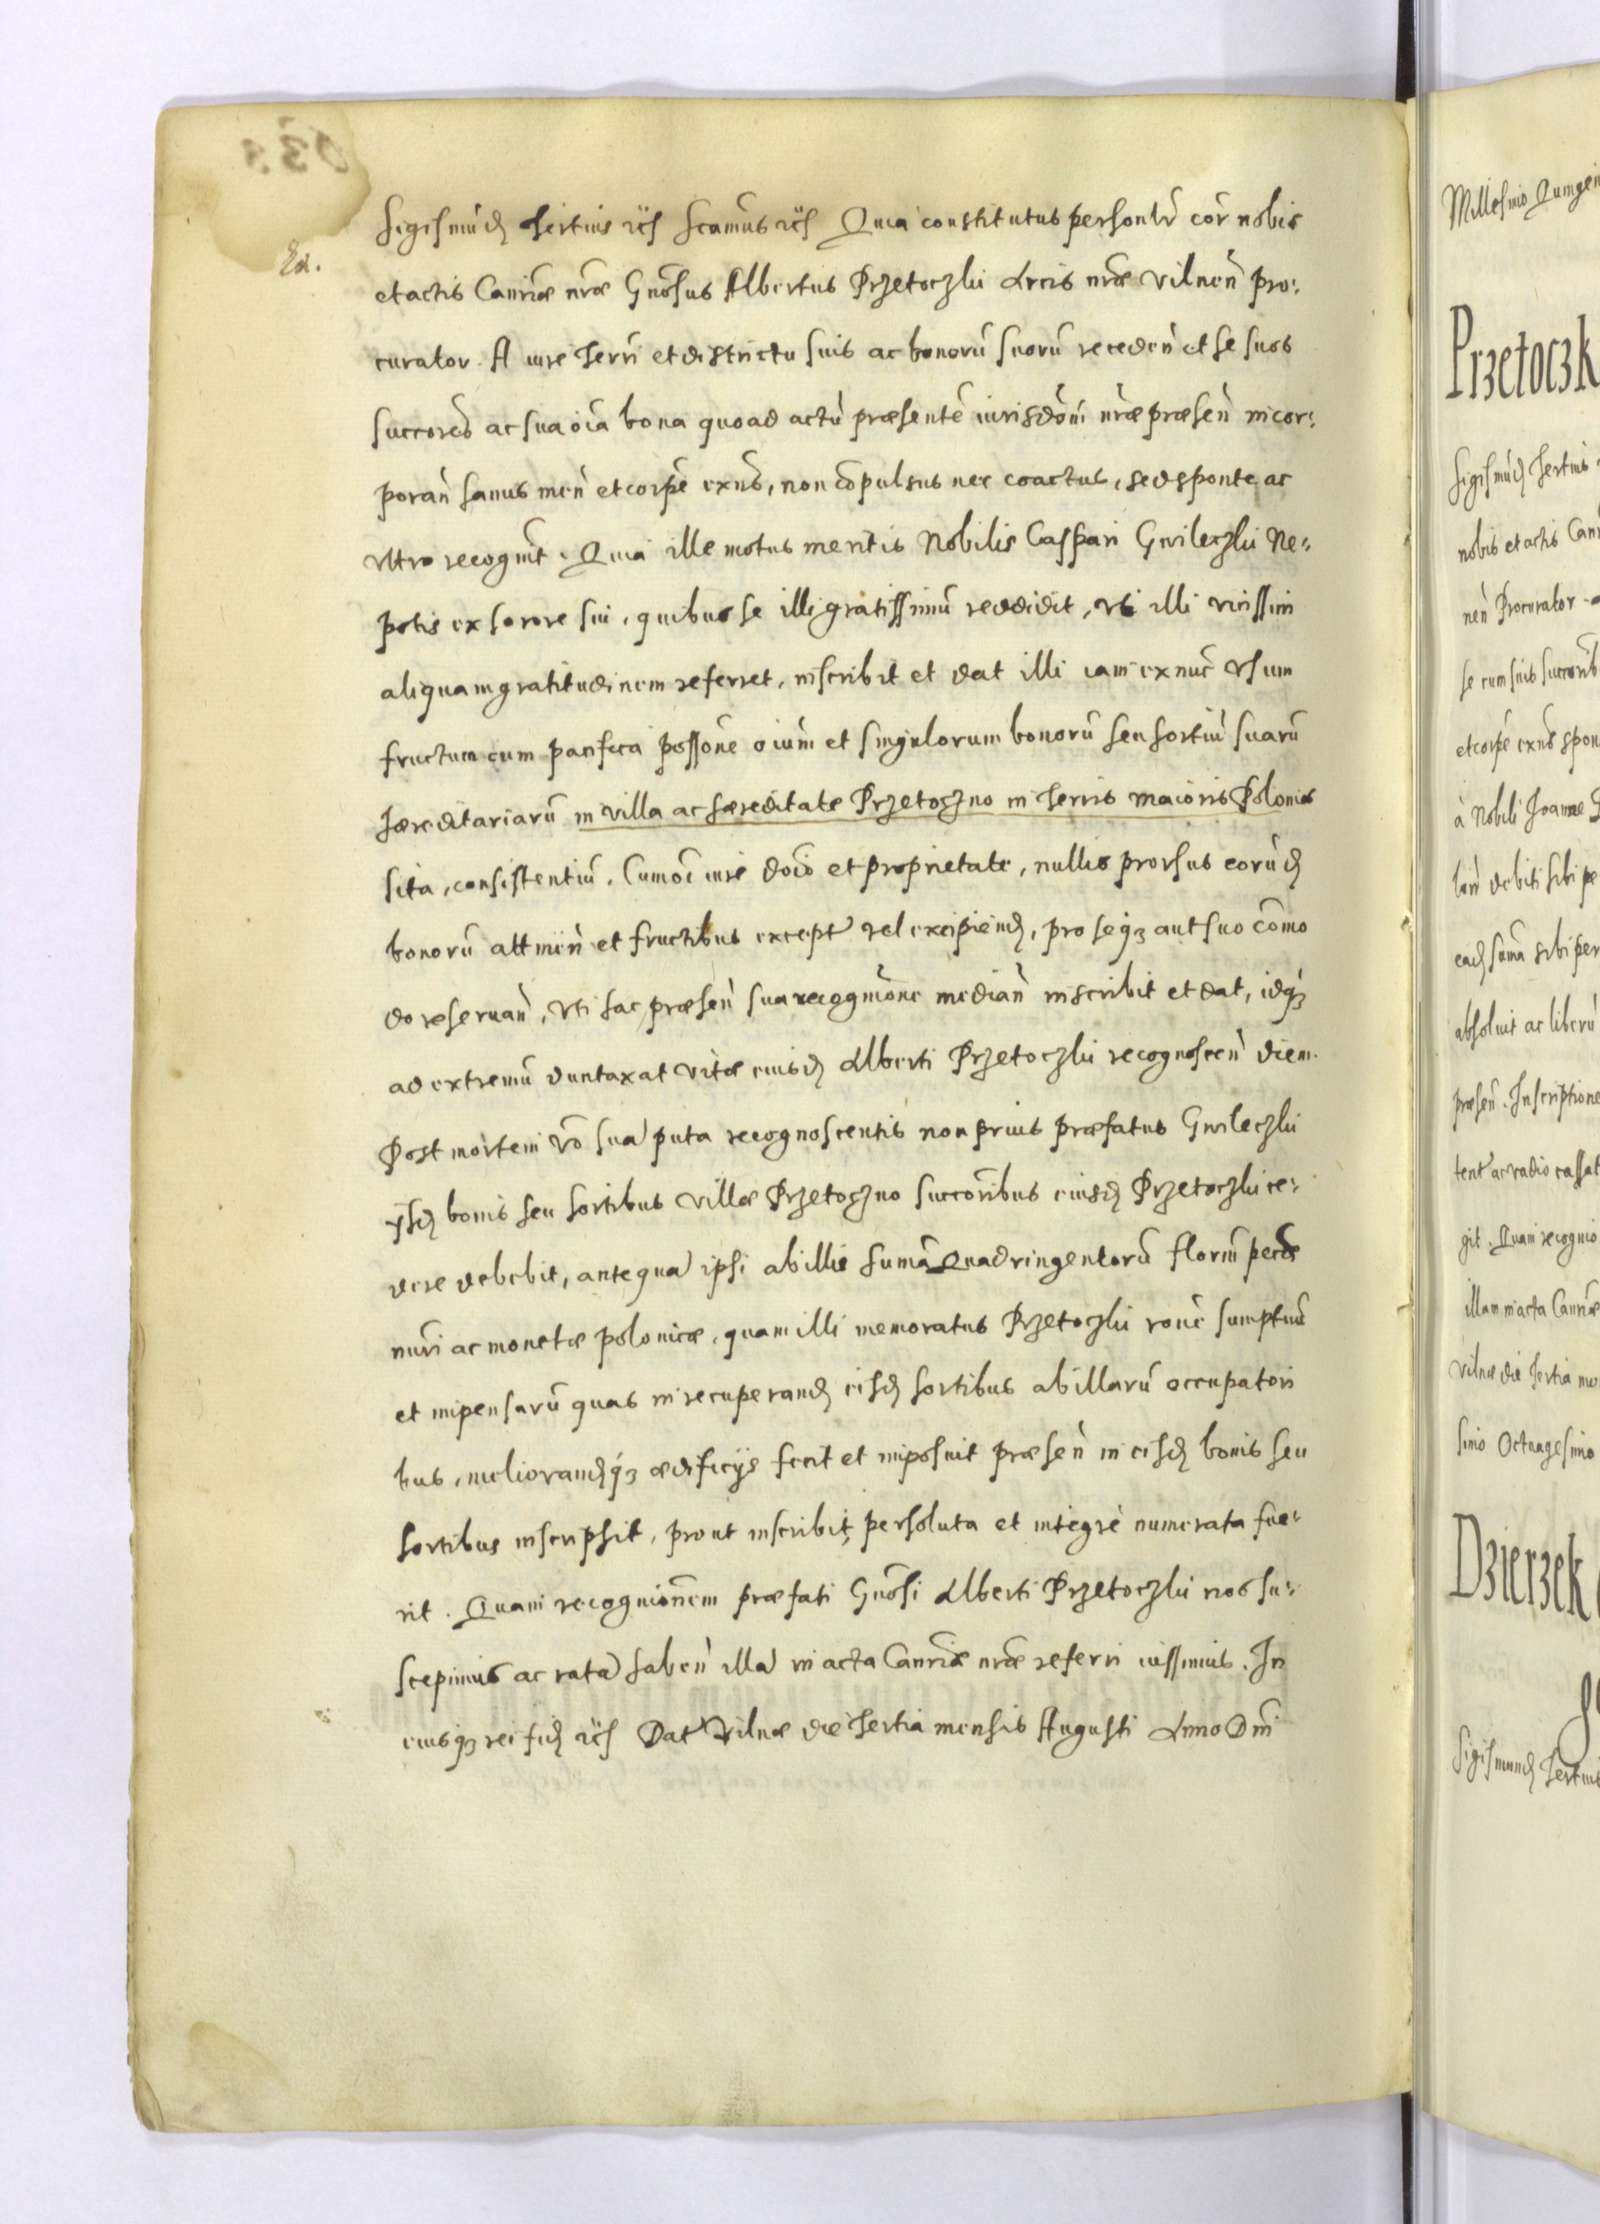 Sigismūd Tertius rċs Scamūs rċs Quia constitutus personlr cor nobis
et actis Canriæ nræ Gnosus Albertus Przetoczki Arcis nræ Vilnen pro:
curator. A iure terri et districtu suis ac bonorū suorū receden et se suos
succoreš ac sua oīa bona quoad actū præsentē iurisdōni nræ præsen incor:
poran sanus men et corpe exns, non cōpulsus nec coactus, sed sponte ac
vltro recognit. Quia ille motus meritis Nobilis Caspari Gwileczki Ne:
potis ex sorore sui, quibus se illi gratissimū reddidit, vti illi vicissim
aliquam gratitudinem referret, inscribit et dat illi iam ex nuc vsum
fructum cum pacifica possōne oium et singulorum bonorū seu sortiū suarū
hæreditariarū in villa ac hæreditate Przetoczno in terris maioris Polonies
sita, consistentiū. Cum oi iure doīo et proprietate, nullis prorsus eorūd
bonorū attinēn et fructibus except vel excipiend, pro seqz aut suo cōmo
do reseruan, vti hac præsen sua recognōne median inscribit et dat, idqz
ad extremū duntaxat vitæ eiusd Alberti Przetoczki recognoscen diem.
Post mortem vo sua puta recognoscentis non prius præfatus Gwileczki
ysd bonis seu sortibus villæ Przetoczno succoribus eiusd Przetoczki ce:
dere debebit, antequa ipsi ab illis sumā Quadringentorū floren pecæ
nūri ac monetæ polonicæ, quam illi memoratus Przetoczki rone sumptuū
et impensarū quas in recuperand eisd sortibus ab illarū occupatori
bus, meliorandqz ædificijs fecit et imposuit præsen in eisd bonis seu
sortibus inscripsit, prout inscribit, persoluta et integre numerata fue:
rit. Quam recognionem præfati Gnosi Alberti Przetoczki nos su:
scepimus ac rata haben illa in acta Canriæ nræ referri iussimus. In
cuiusqz rei fid rċs Dat Vilnæ die tertia mensis Augusti Anno Dni
Millesimo Quingen
Przetoczk
Sigismūd Tertius
nobis et actis Can
nen Procurator
se cum suis succorib
et corpe exns spon
à Nobili Joanne G
eād sumā sibi per
absoluit ac liberū
præsen. Inscriptione
git. Quam recognio
illam in acta Canriæ
Vilnæ die tertia me
simo Octuagesimo
Dzierzek
Sigismund Tertius